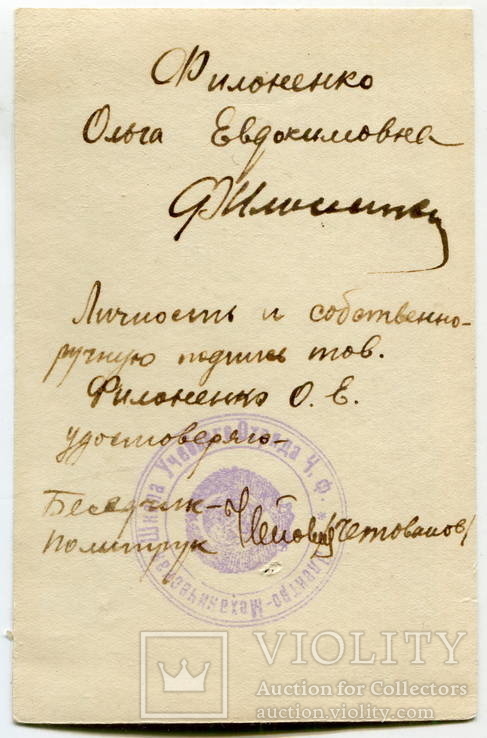 Филоненко
Ольга Евдокимовна
Филоненко
Личность и собственно-
ручную подпись тов.
Филоненко О. Е.
удостоверяю-
Политрук
Электро-Механическая Школа Учебного Отряда Ч. Ф.
VIOLITY
Auction for Collectors
auction.violity.com